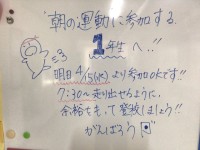 朝の運動に参加する
1年生へ..!!
明日4/15(水)より参加OKです!!
7:30〜走り出せるように、
余裕をもって登校しましょう!!
がんばろう